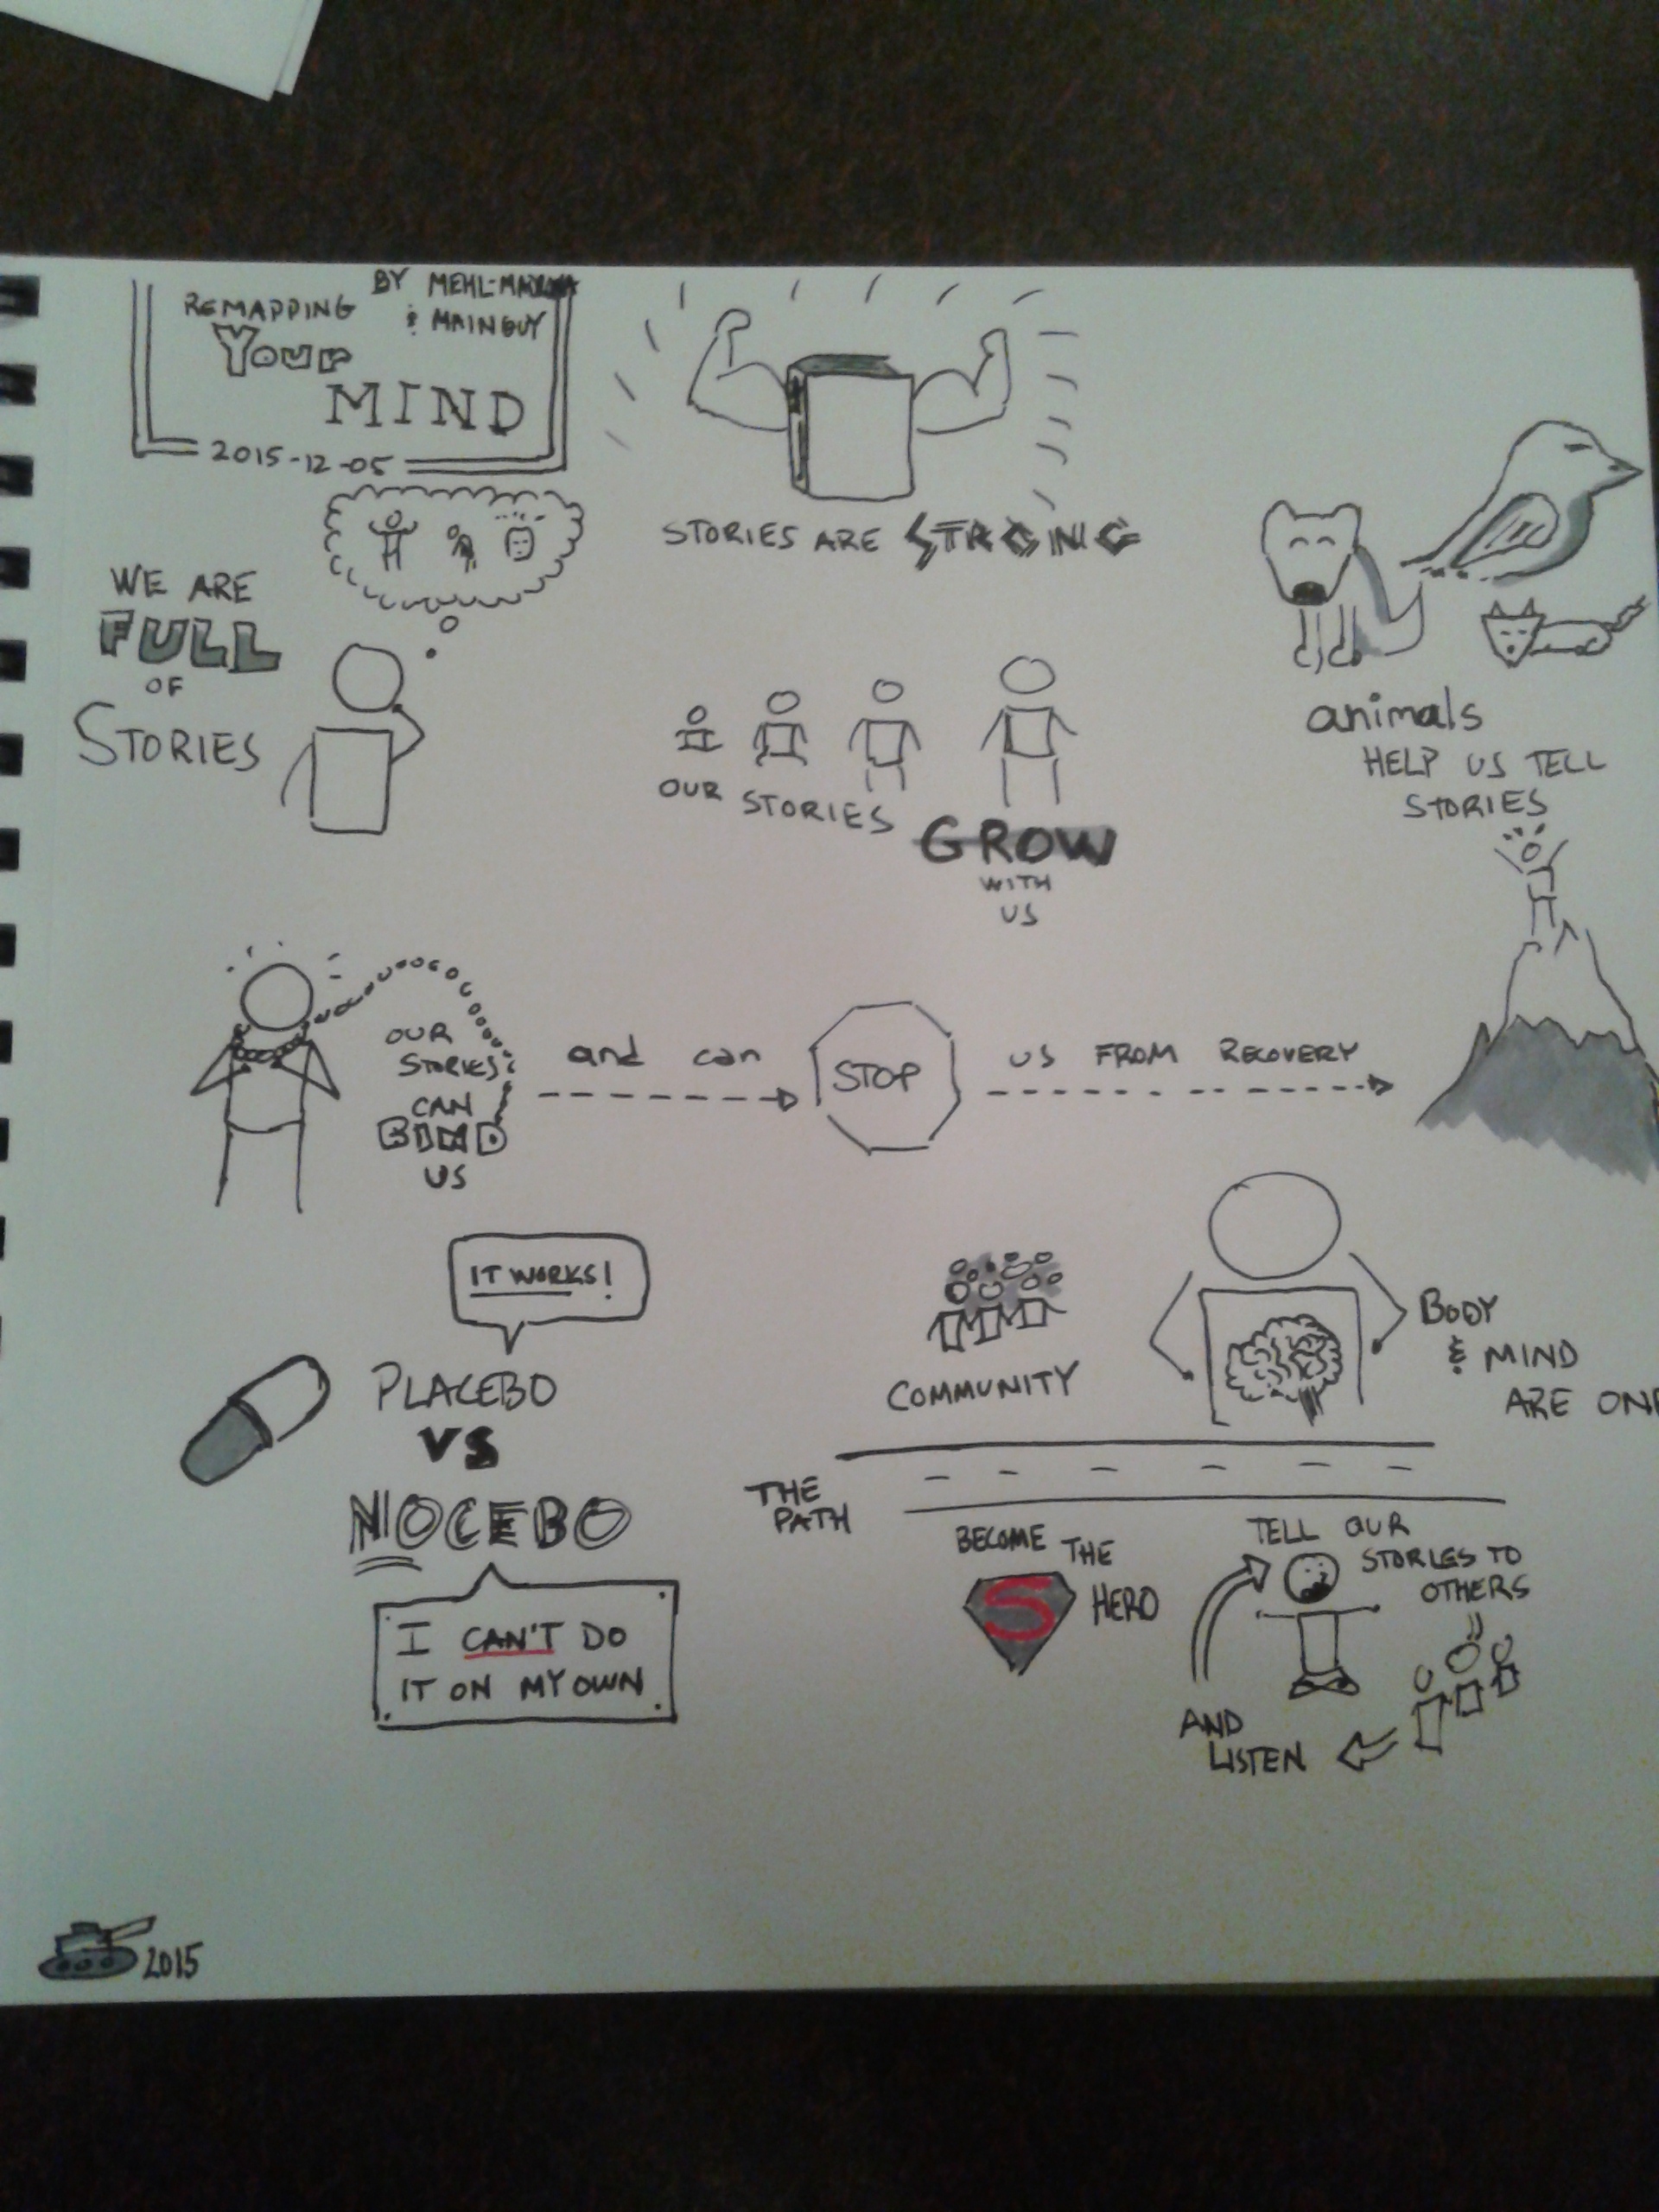 REMAPPING
Your
MIND
BY MEHL-
& MAINGUY
2015-12-05
STORIES ARE STRONG
WE ARE
FULL
OF
STORIES
OUR STORIES
GROW
WITH
US
animals
HELP US TELL
STORIES
OUR
STORIES
CAN
BIND
US
and can
STOP
US FROM RECOVERY
IT WORKS!
PLACEBO
VS
NOCEBO
I CAN'T DO
IT ON MY OWN
COMMUNITY
BODY
& MIND
ARE ONE
THE
PATH
BECOME THE
S
HERO
TELL OUR
STORIES TO
OTHERS
AND
LISTEN
2015